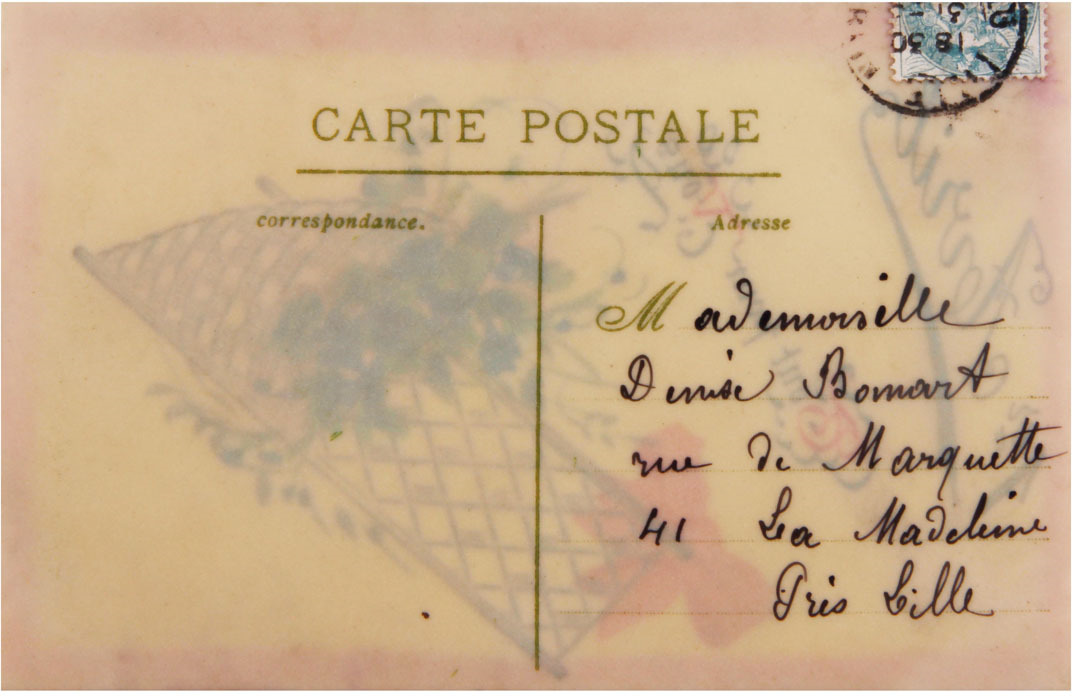 CARTE POSTALE
correspondance.
Adresse
Mademoiselle
Denise Bomart
rue de Marquette
41 La Madeleine
Près Lille
18 30
31